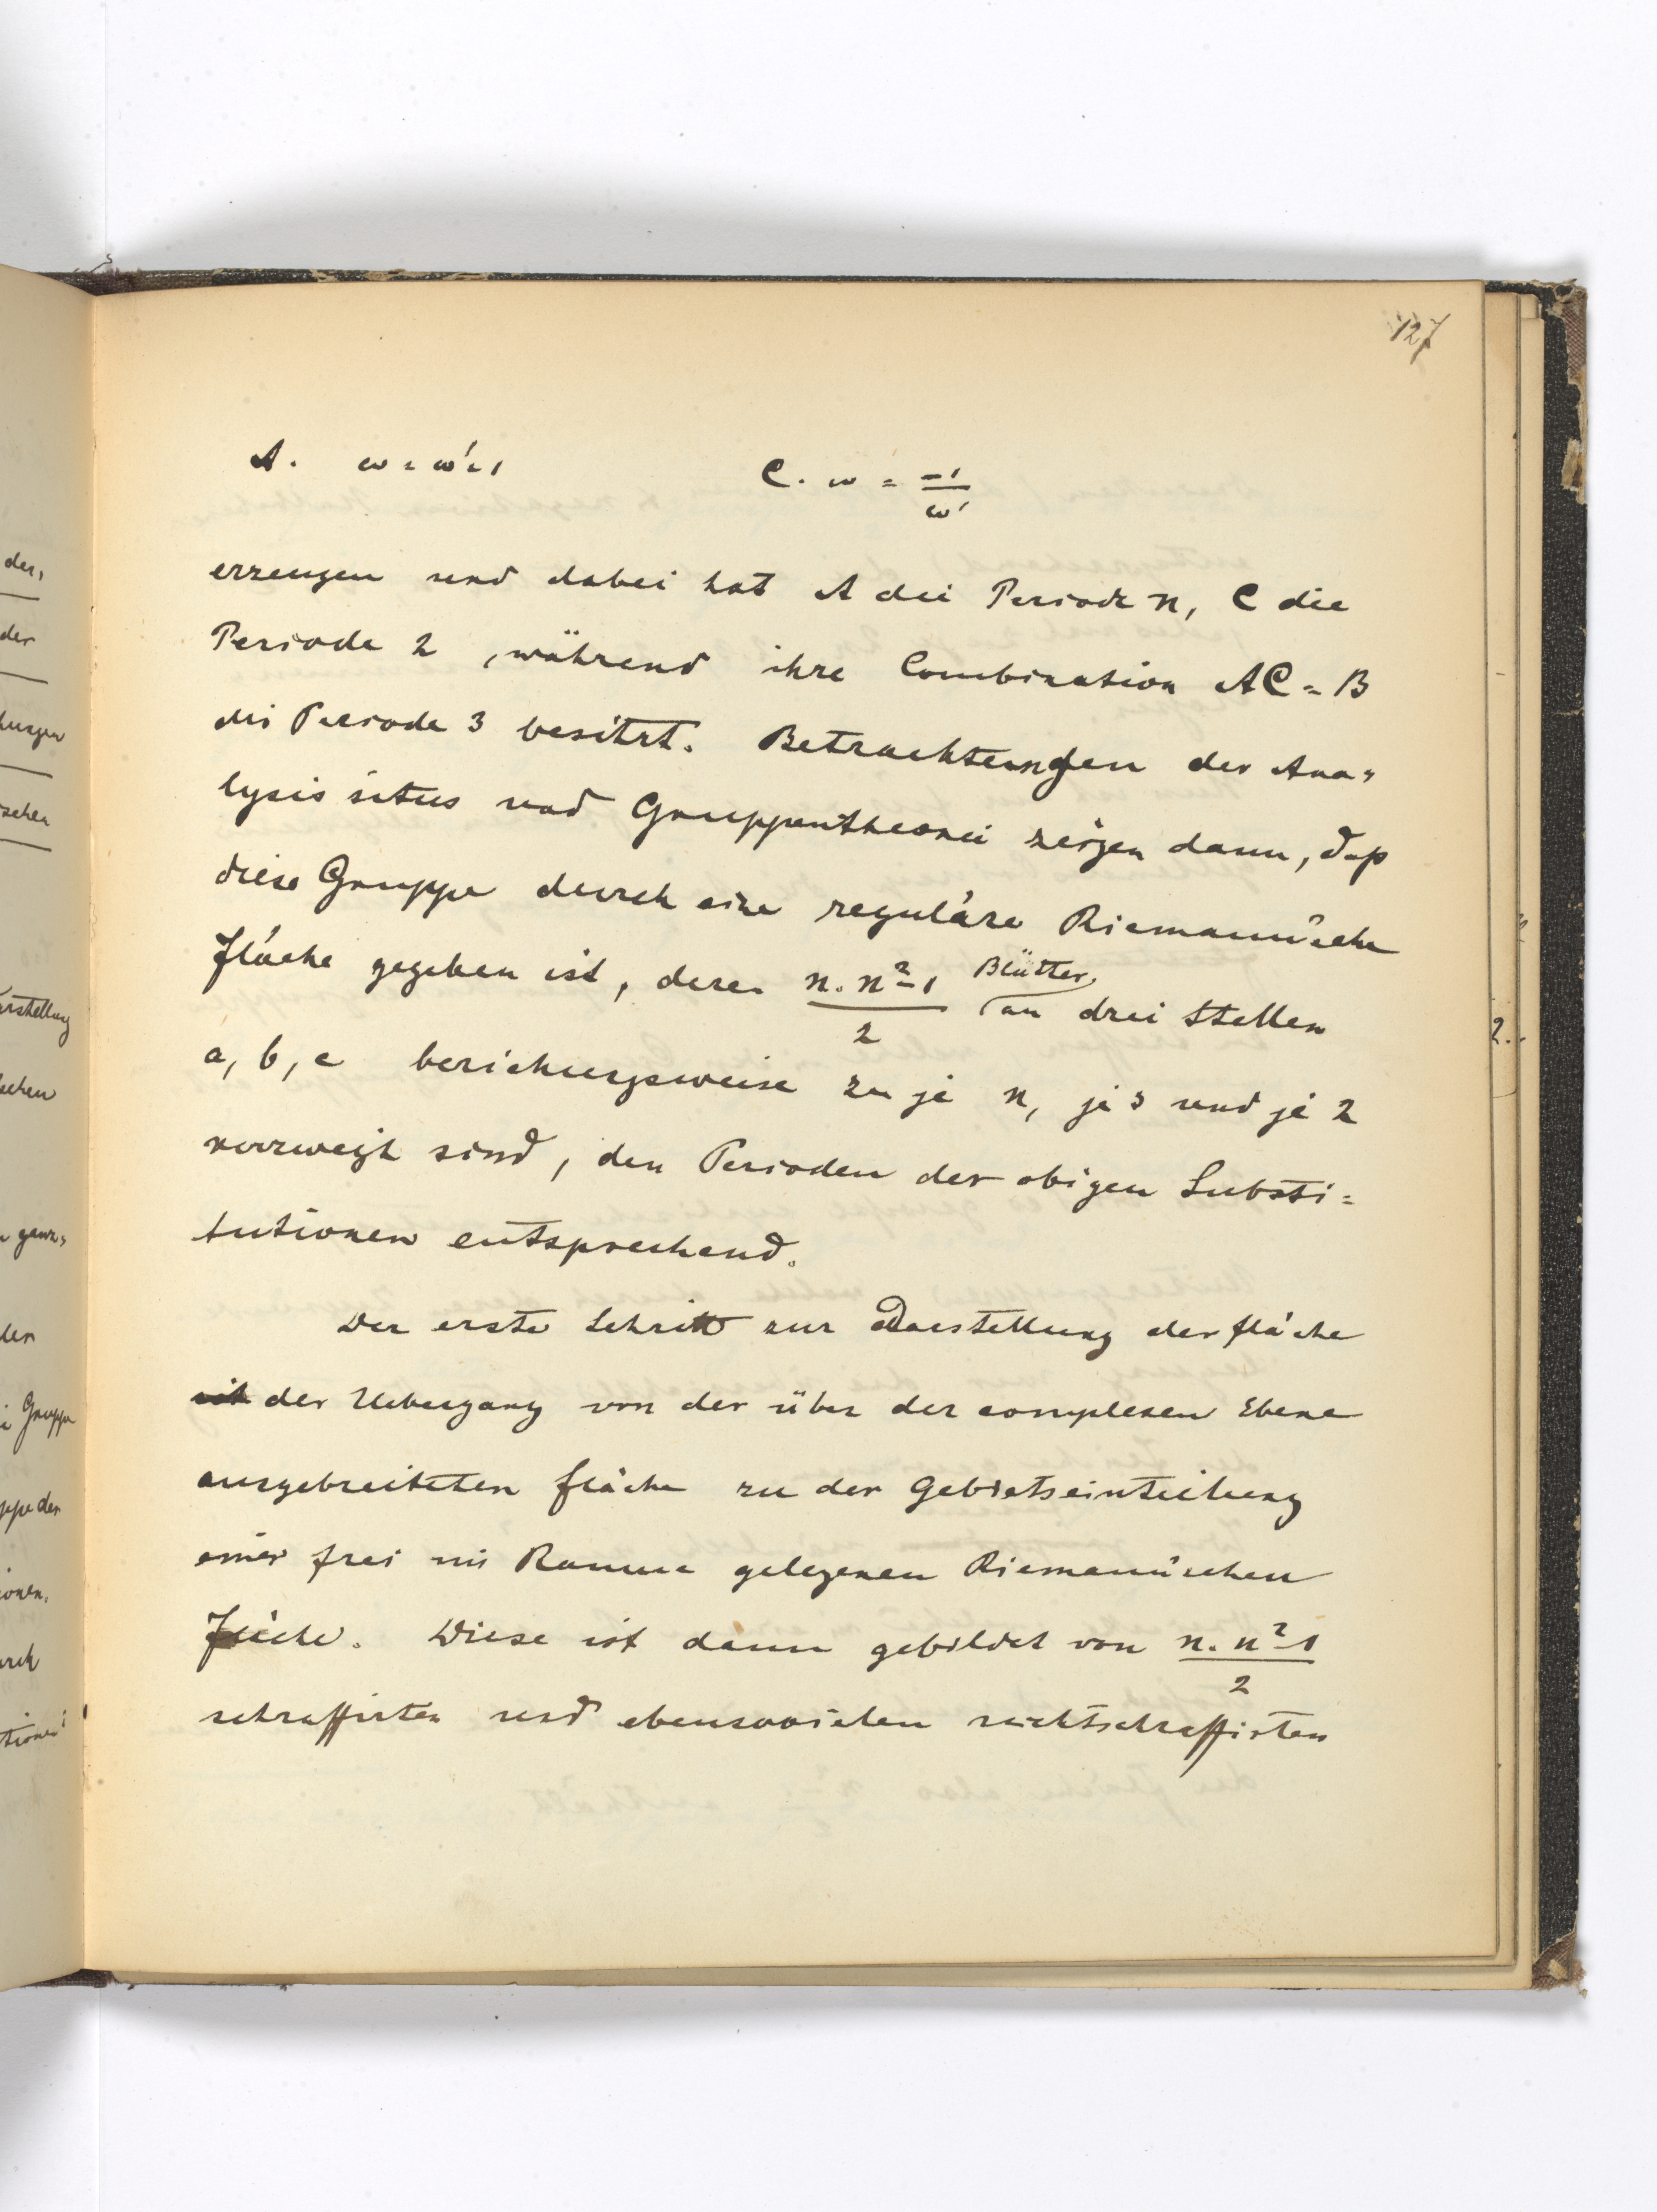 127
A. ω = ω'-1 C. ω = -1/ω'
erzeugen und dabei hat A die Periode n, C die
Periode 2, während ihre Combination AC = B
die Periode 3 besitzt. Betrachtungen der Ana=
lysis situs und Gruppentheorie zeigen dann, daß
diese Gruppe durch eine reguläre Riemann'sche
Fläche gegeben ist, deren n. n²-1/2 Blätter an drei Stellen
a, b, c beziehungsweise zu je n, je 3 und je 2
verzweigt sind, den Perioden der obigen Substi=
tutionen entsprechend.
Der erste Schritt zur Darstellung der Fläche
ist der Uebergang von der über der complexen Ebene
ausgebreiteten Fläche zu der Gebietseinteilung
einer frei im Raume gelegenen Riemann'schen
Fläche. Diese ist dann gebildet von n. n²-1/2
schraffirten und ebensovielen nichtschraffirten
der,
der
schen
Gruppe
ppe der
ionen.
2.